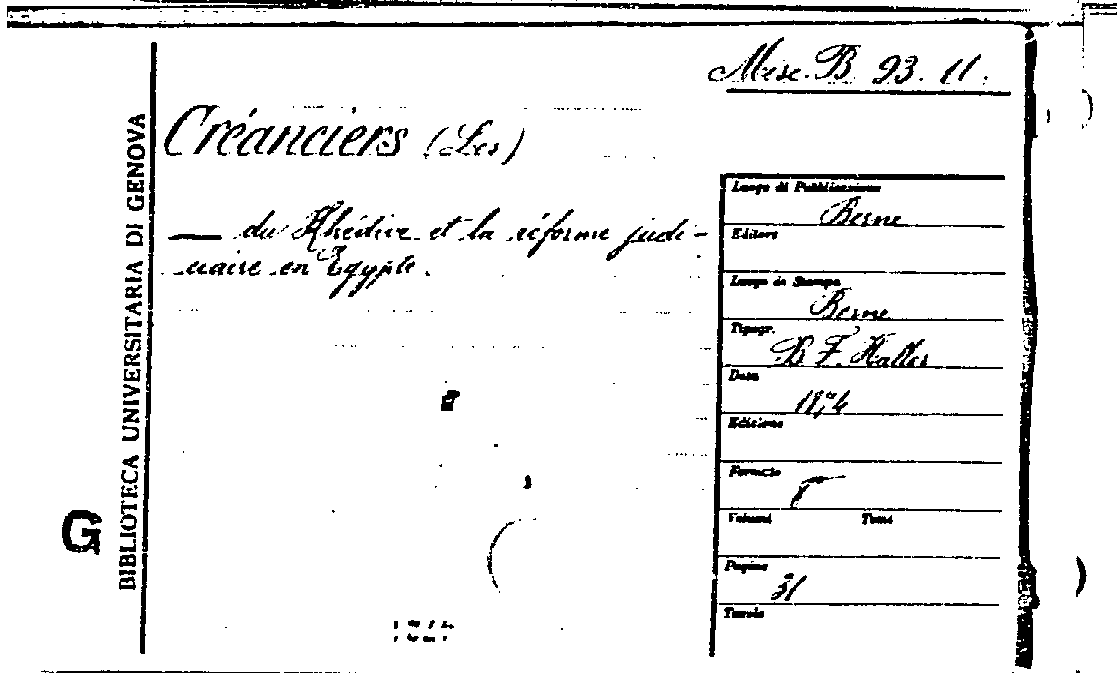 Misc. B. 93. 11.
Créanciers (Les)
— du Khédive et la réforme judi-
ciaire en Egypte.
BIBLIOTECA UNIVERSITARIA DI GENOVA
G
Luogo di Pubblicazione
Berne
Editore
Luogo di Stampa
Berne
Tipogr.
B. F. Haller
Data
1874
Edizione
Formato
8°
Volumi Tomi
Pagine
31
Tavole